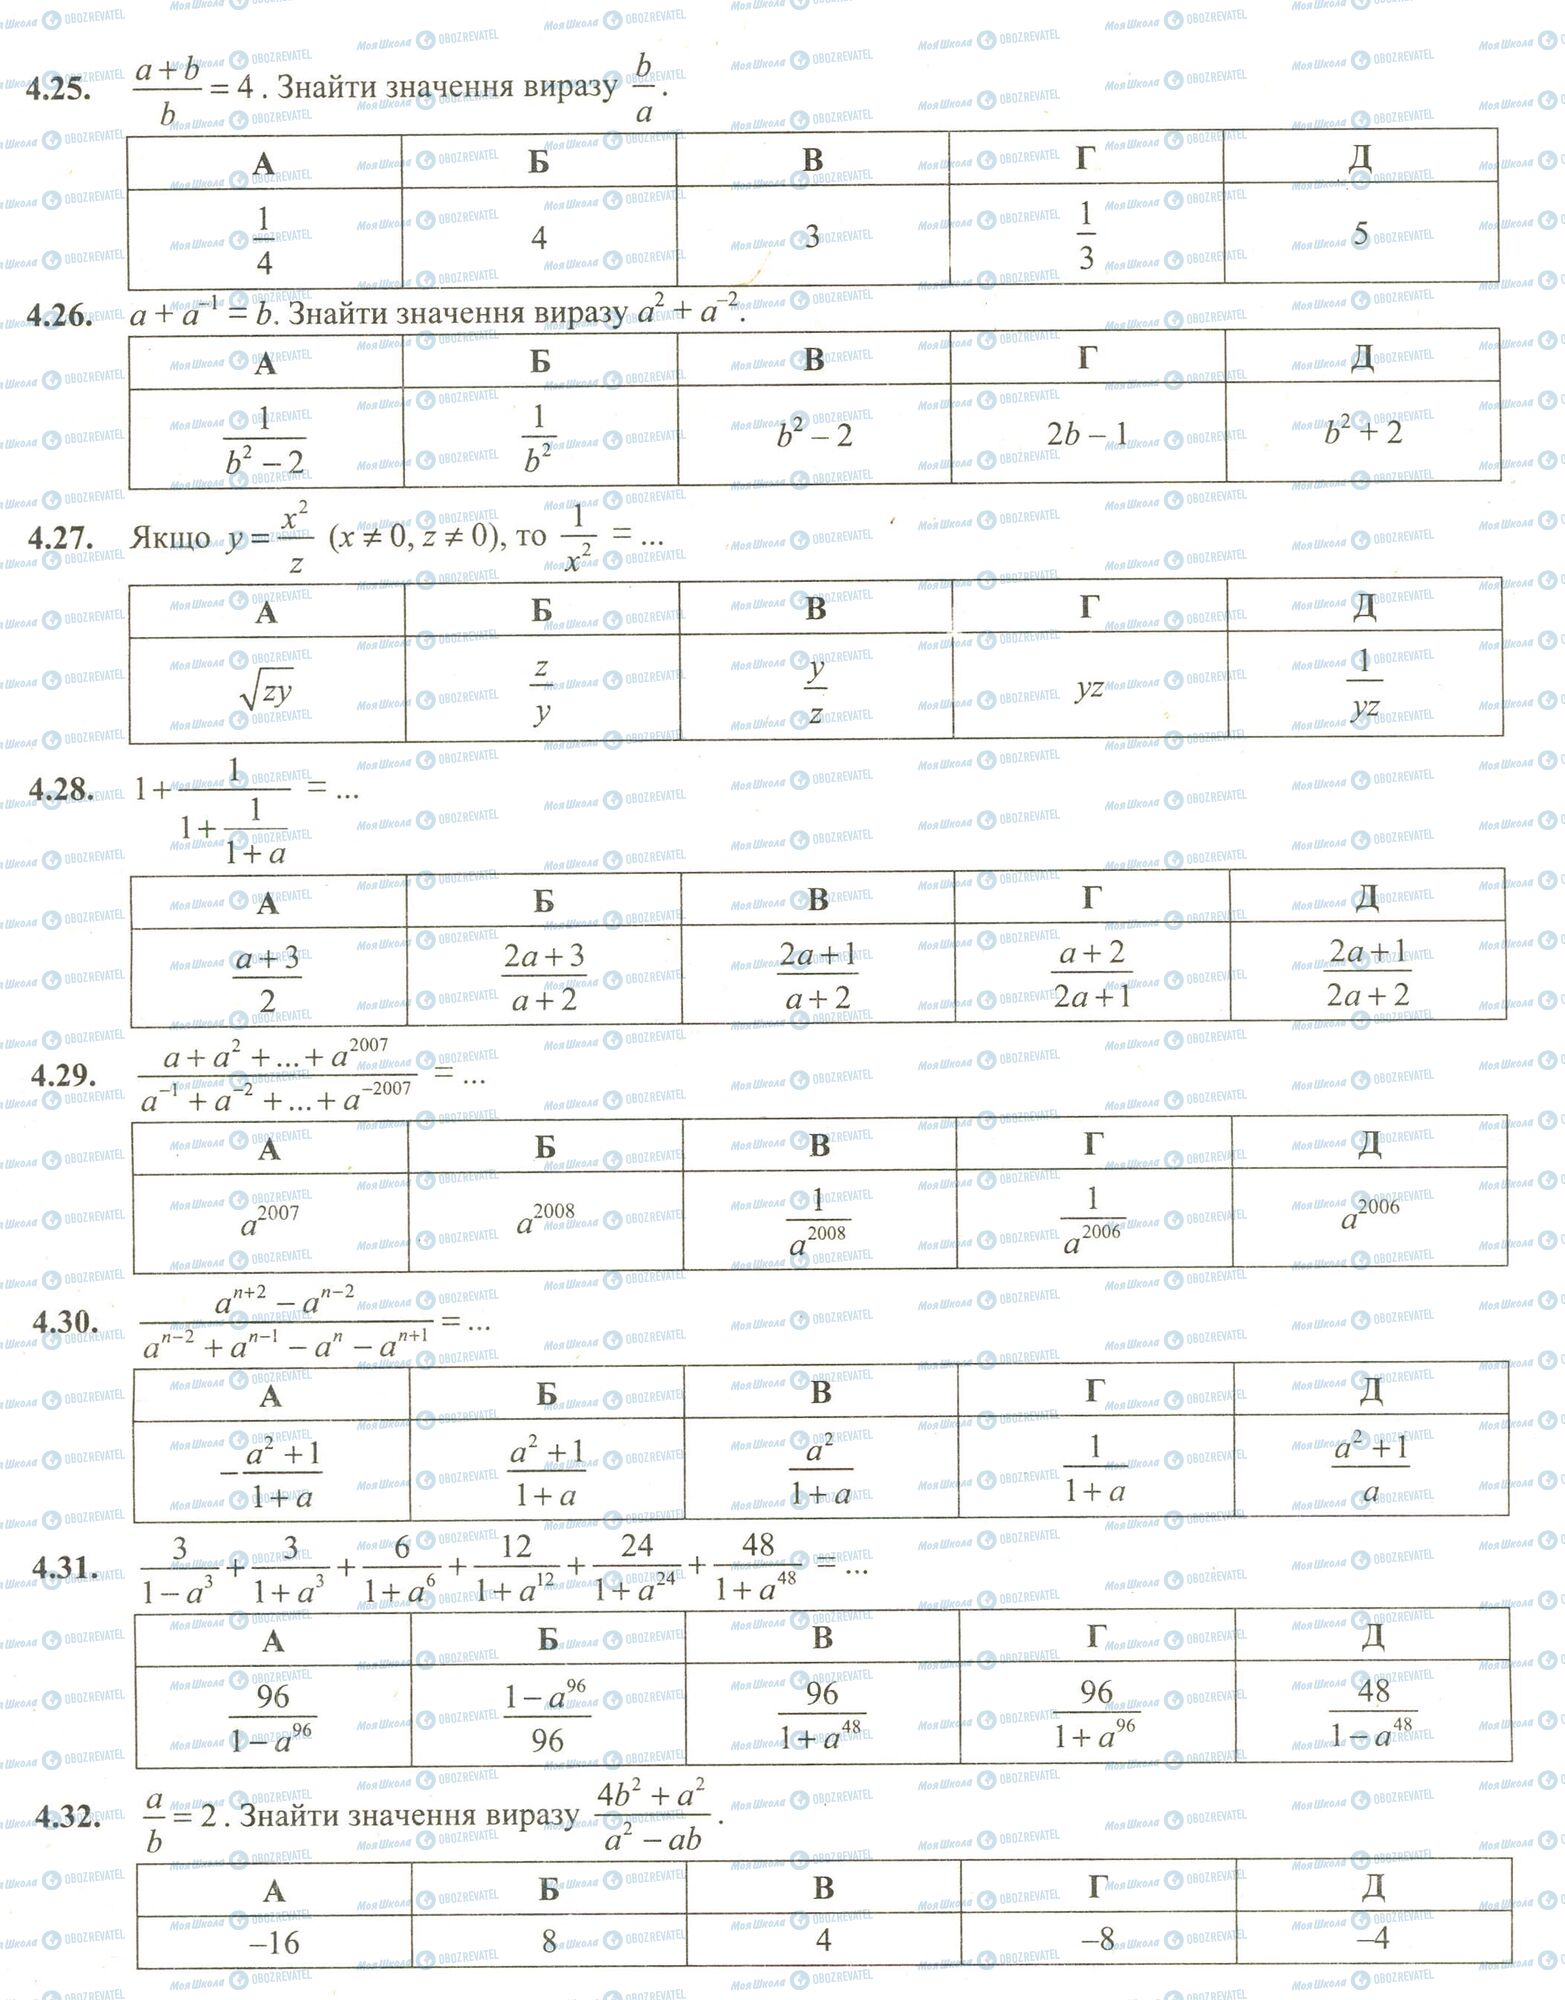 4.25. (a + b)/b = 4. Знайти значення виразу b/a.
А Б В Г Д
1/4 4 3 1/3 5
4.26. a + a⁻¹ = b. Знайти значення виразу a² + a⁻².
А Б В Г Д
1/(b² – 2) 1/b² b² – 2 2b – 1 b² + 2
4.27. Якщо y = x²/z (x ≠ 0, z ≠ 0), то 1/x² = ...
А Б В Г Д
√(zy) z/y y/z yz 1/(yz)
4.28. 1 + 1/(1 + 1/(1 + a)) = ...
А Б В Г Д
(a + 3)/2 (2a + 3)/(a + 2) (2a + 1)/(a + 2) (a + 2)/(2a + 1) (2a + 1)/(2a + 2)
4.29. (a + a² + ... + a²⁰⁰⁷)/(a⁻¹ + a⁻² + ... + a⁻²⁰⁰⁷) = ...
А Б В Г Д
a²⁰⁰⁷ a²⁰⁰⁸ 1/a²⁰⁰⁸ 1/a²⁰⁰⁶ a²⁰⁰⁶
4.30. (aⁿ⁺² – aⁿ⁻²)/(aⁿ⁻² + aⁿ⁻¹ – aⁿ – aⁿ⁺¹) = ...
А Б В Г Д
–(a² + 1)/(1 + a) (a² + 1)/(1 + a) a²/(1 + a) 1/(1 + a) (a² + 1)/a
4.31. 3/(1 – a³) + 3/(1 + a³) + 6/(1 + a⁶) + 12/(1 + a¹²) + 24/(1 + a²⁴) + 48/(1 + a⁴⁸) = ...
А Б В Г Д
96/(1 – a⁹⁶) (1 – a⁹⁶)/96 96/(1 + a⁴⁸) 96/(1 + a⁹⁶) 48/(1 – a⁴⁸)
4.32. a/b = 2. Знайти значення виразу (4b² + a²)/(a² – ab).
А Б В Г Д
–16 8 4 –8 –4
МояШкола OBOZREVATEL